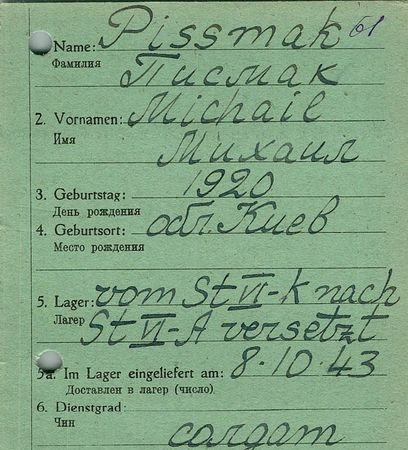 1. Name: Pissmak 61
Фамилия Писмак
2. Vornamen: Michail
Имя
Михаил
3. Geburtstag: 1920
День рождения
4. Geburtsort: обл. Киев
Место рождения
5. Lager: vom St VI-K nach
Лагер St VI-A versetzt
5a. Im Lager eingeliefert am: 8.10.43
Доставлен в лагер (число)
6. Dienstgrad:
Чин
солдат